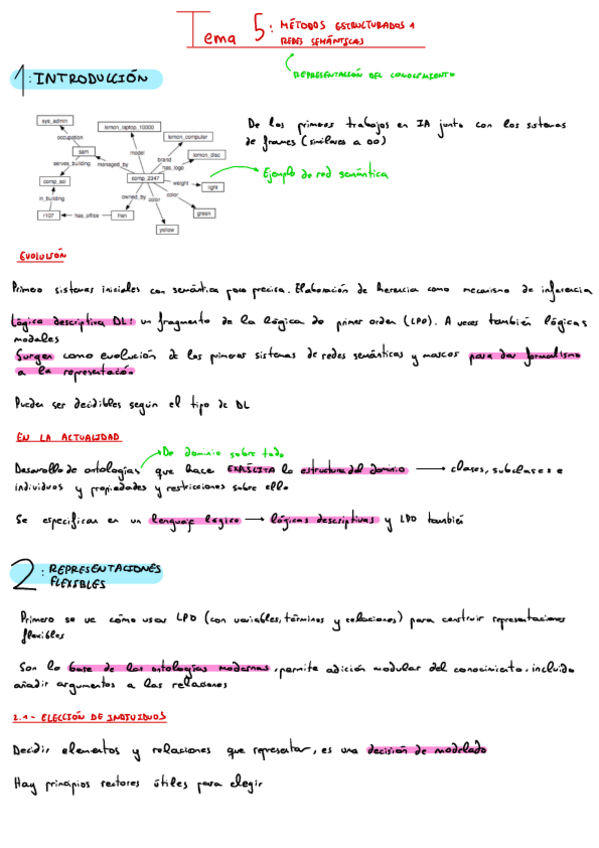 Tema 5: MÉTODOS ESTRUCTURADOS 1
REDES SEMÁNTICAS
REPRESENTACIÓN DEL CONOCIMIENTO
1: INTRODUCCIÓN
De los primeros trabajos en IA junto con los sistemas
de frames (similares a OO)
Ejemplo de red semántica
sys_admin
lemon_laptop_10000
lemon_computer
occupation
model
brand
has_logo
sam
lemon_disc
serves_building
managed_by
comp_sci
comp_2347
weight
light
in_building
owned_by
color
color
r107
has_office
fran
green
yellow
EVOLUCIÓN
Primero sistemas iniciales con semántica poco precisa. Elaboración de herencia como mecanismo de inferencia
Lógica descriptiva DL: un fragmento de la lógica de primer orden (LPO). A veces también lógicas
modales
Surgen como evolución de los primeros sistemas de redes semánticas y marcos para dar formalismo
a la representación
Pueden ser decidibles según el tipo de DL
EN LA ACTUALIDAD
De dominio sobre todo
Desarrollo de ontologías que hace EXPLÍCITA la estructura del dominio → clases, subclases e
individuos y propiedades y restricciones sobre ello
Se especifican en un lenguaje lógico → lógicas descriptivas y LPO también
2: REPRESENTACIONES
FLEXIBLES
Primero se ve cómo usar LPO (con variables, términos y relaciones) para construir representaciones
flexibles
Son la base de las ontologías modernas, permite adición modular del conocimiento, incluido
añadir argumentos a las relaciones
2.1- ELECCIÓN DE INDIVIDUOS
Decidir elementos y relaciones que representar, es una decisión de modelado
Hay principios rectores útiles para elegir